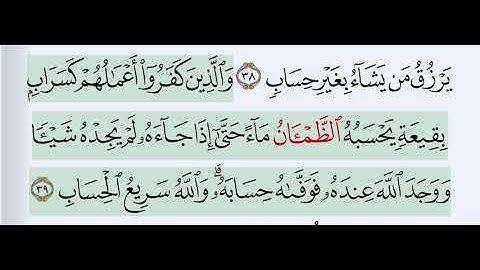 يَرْزُقُ مَن يَشَآءُ بِغَيْرِ حِسَابٍ ٣٨ وَٱلَّذِينَ كَفَرُوٓا۟ أَعْمَٰلُهُمْ كَسَرَابٍۭ
بِقِيعَةٍ يَحْسَبُهُ ٱلظَّمْـَٔانُ مَآءً حَتَّىٰٓ إِذَا جَآءَهُۥ لَمْ يَجِدْهُ شَيْـًٔا
وَوَجَدَ ٱللَّهَ عِندَهُۥ فَوَفَّىٰهُ حِسَابَهُۥ ۗ وَٱللَّهُ سَرِيعُ ٱلْحِسَابِ ٣٩